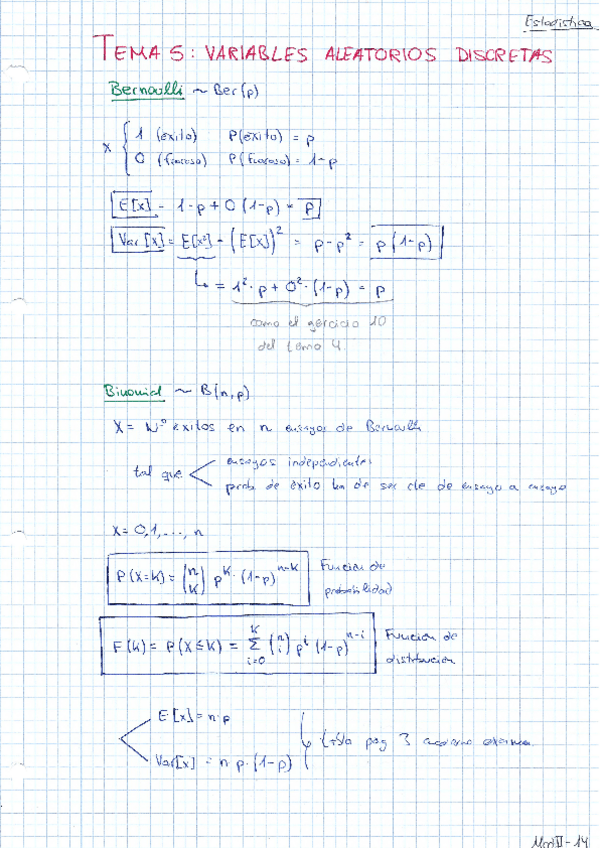 Estadística
TEMA 5: VARIABLES ALEATORIOS DISCRETAS
Bernoulli ~ Ber(p)
X { 1 (éxito) P(éxito) = p
0 (fracaso) P(fracaso) = 1-p
E[x] = 1·p + 0(1-p) = p
Var[x] = E[x²] - (E[x])² = p - p² = p(1-p)
↳ = 1²·p + 0²·(1-p) = p
como el ejercicio 10
del tema 4.
Binomial ~ B(n,p)
X = Nº éxitos en n ensayos de Bernoulli
tal que < ensayos independientes
prob de éxito ha de ser cte de ensayo a ensayo
X = 0,1,..., n
P(X=K) = (n K) p^K · (1-p)^(n-K) Función de
probabilidad
F(K) = P(X≤K) = Σ_{i=0}^{K} (n i) p^i (1-p)^(n-i) Función de
distribución
E[x] = n·p
Var[x] = n p·(1-p)
pag 3
Mod II - 14